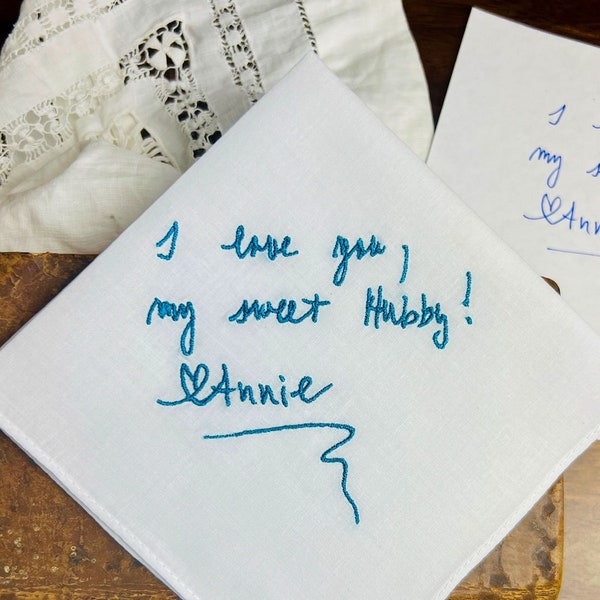 I love you,
my sweet Hubby!
♡Annie
I
my s
♡Ann